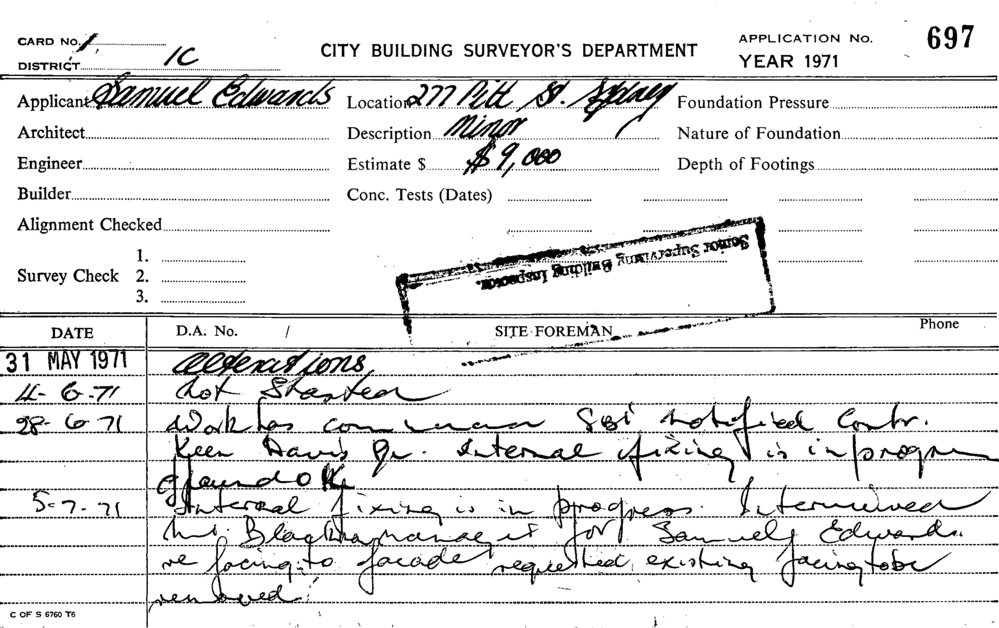 CARD No. 1
DISTRICT 1C
CITY BUILDING SURVEYOR'S DEPARTMENT
APPLICATION No. 697
YEAR 1971
Applicant Samuel Edwards Location 277 Pitt St. Sydney Foundation Pressure
Architect Description Minor Nature of Foundation
Engineer Estimate $ $9,000 Depth of Footings
Builder Conc. Tests (Dates)
Alignment Checked
Senior Supervising Building Inspector.
Survey Check 1.
2.
3.
DATE D.A. No. / SITE FOREMAN Phone
31 MAY 1971 alterations
4-6-71 Not Started
28-6-71 Work has SBI notified Contr.
Keen Davis Internal fixing is in
found OK
5-7-71 Internal fixing is in progress. Interviewed
for Samuel Edwards.
re facing to facade requested existing facing to be
removed.
C OF S 6760 T6